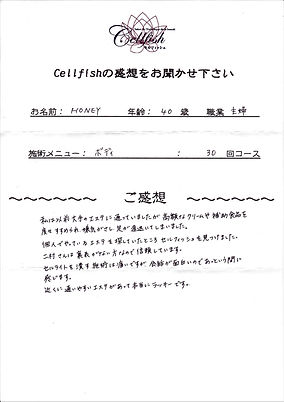 Cellfish
Cellfishの感想をお聞かせ下さい
お名前： HONEY 年齢： 40 歳 職業 主婦
施術メニュー： ボディ ： 30 回コース
～～～～～～ ご感想 ～～～～～～
私は以前大手のエステに通っていましたが高額なクリームや補助食品を
度々すすめられ嫌気がさし足が遠退いてしまいました。
個人でやっているエステを探していたところセルフィッシュを見つけました。
二村さんは裏表がない方なので信頼しています。
セルライトを潰す施術は痛いですが会話が面白いのであっという間に
感じます。
近くに通いやすいエステがあって本当にラッキーです。